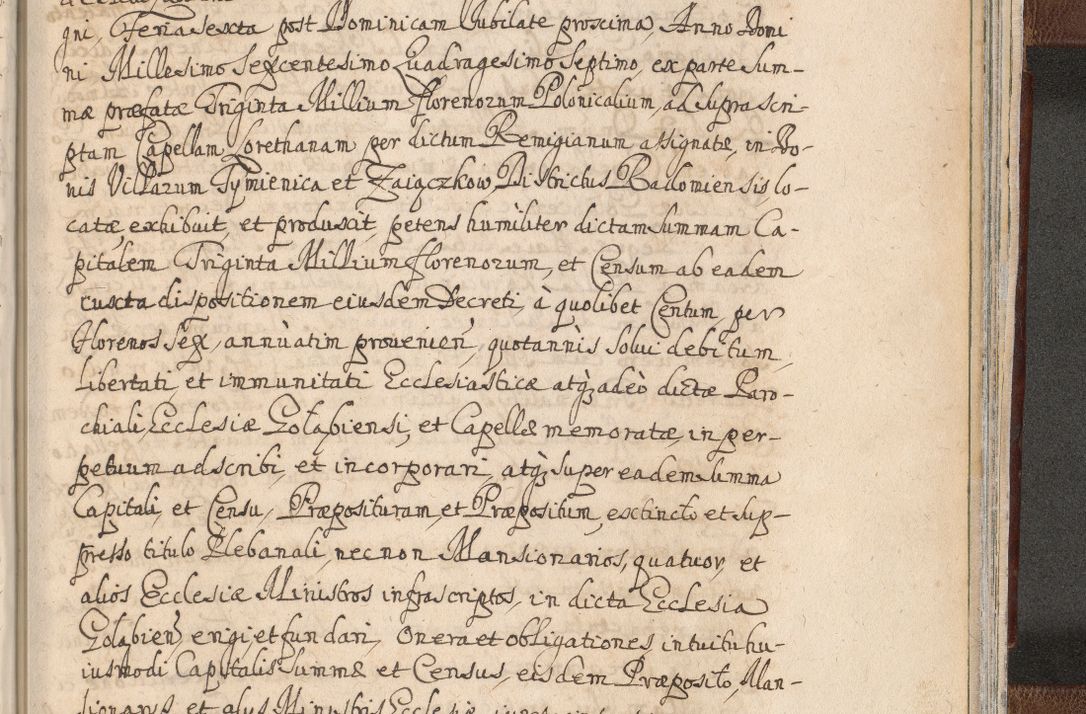 gni, Feria Sexta post Dominicam Iubilate proxima, Anno Domi
ni Millesimo Sexcentesimo Quadragesimo Septimo, ex parte Sum-
mæ præfatæ Triginta Millium florenorum Polonicalium, ad supra scri-
ptam Capellam Lorethanam per dictum Remigianum assignatæ, in Bo-
nis Villarum Tymienica et Zaiączkow Districtus Radomiensis lo-
catæ, exhibuit, et produxit, petens humiliter dictam summam Ca-
pitalem Triginta Millium florenorum, et Censum ab eadem
iuxta dispositionem eiusdem Decreti, à quolibet Centum, per
Florenos Sex, annùatim provenien, quotannìs solui debitum,
Libertati, et immunitati Ecclesiasticæ atq adeò dictæ Paro-
chiali Ecclesiæ Gołąbiensi, et Capellæ memoratæ, in per-
petuum adscribi, et incorporari, atq super eadem summa
Capitali, et Censu, Præposituram, et Præpositum, extincto et sup-
presso titulo Plebanali, necnon Mansionarios, quatuor, et
alios Ecclesiæ Ministros infrascriptos, in dicta Ecclesia
Gołąbien erigi, et fundari, Onera et obligationes intuitu hu-
iusmodi Capitalis summæ et Census, eisdem Præposito, Man-
sionariis, et alijs Ministris Ecclesiæ